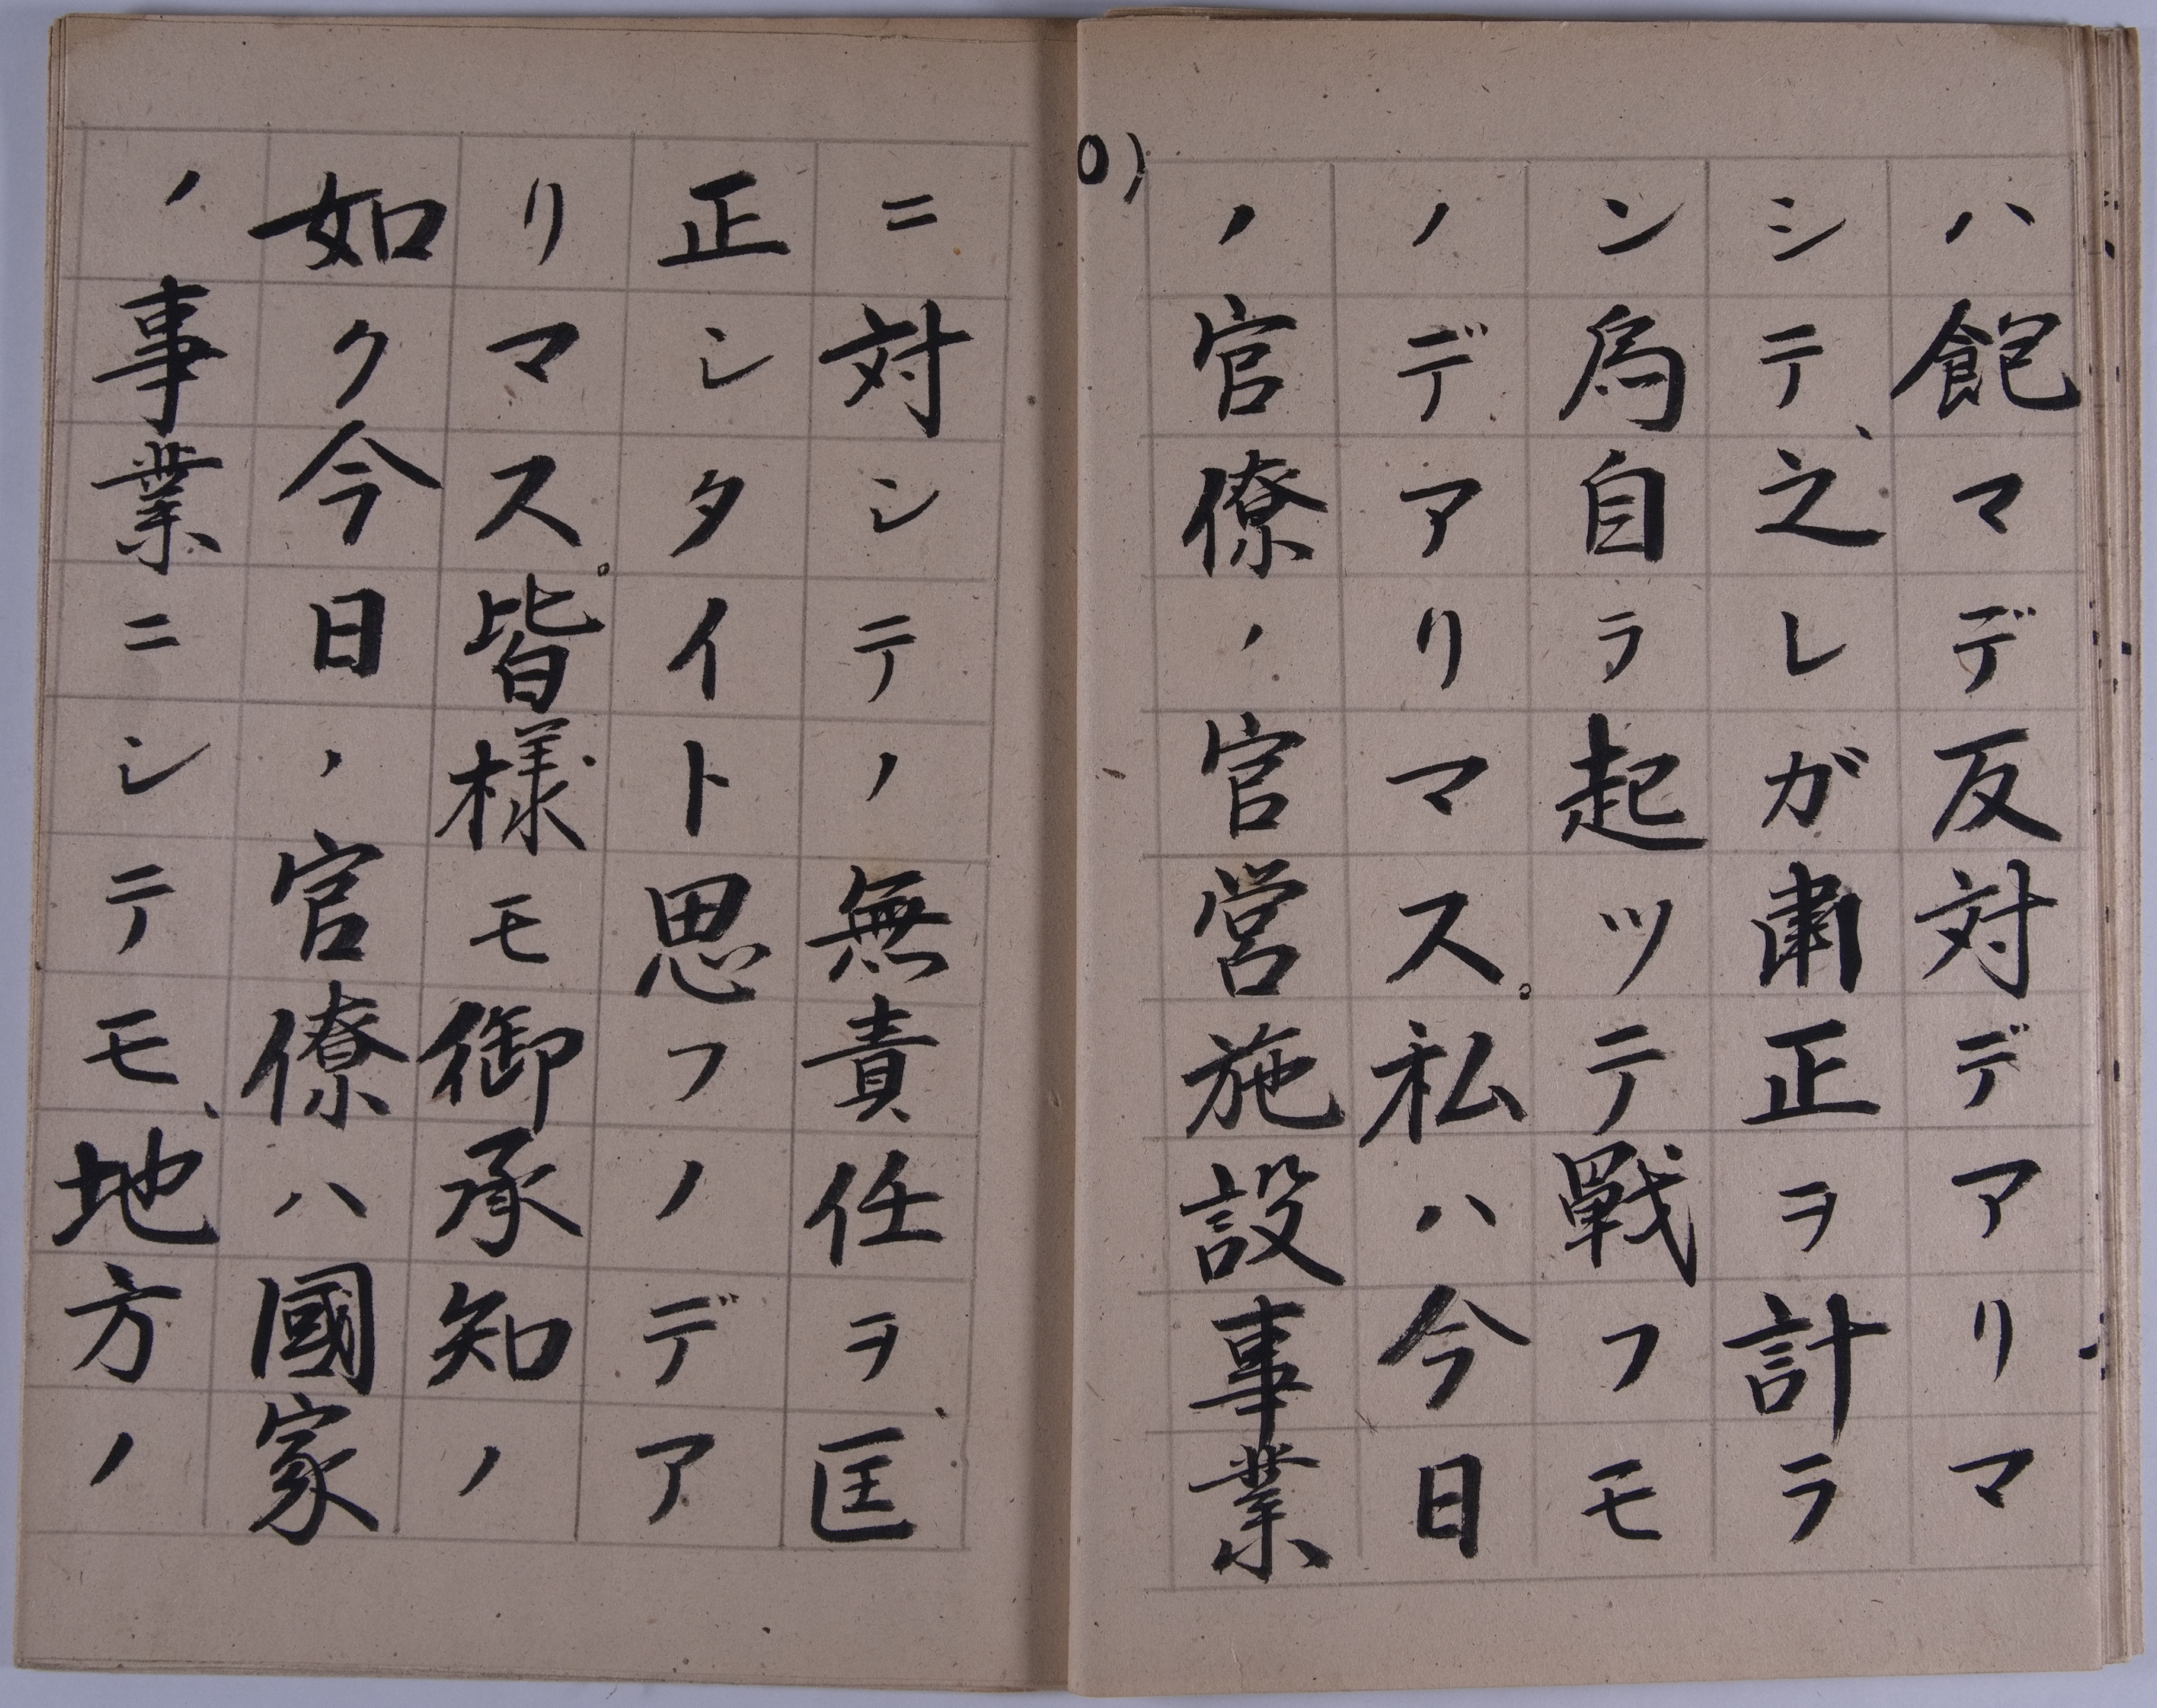 ハ飽マデ反対デアリマ
シテ、之レガ粛正ヲ計ラ
ン為自ラ起ツテ戦フモ
ノデアリマス。私ハ今日
ノ官僚ノ官営施設事業
0)
ニ対シテノ無責任ヲ、匡
正シタイト思フノデア
リマス。皆様モ御承知ノ
如ク今日ノ官僚ハ國家
ノ事業ニシテモ、地方ノ